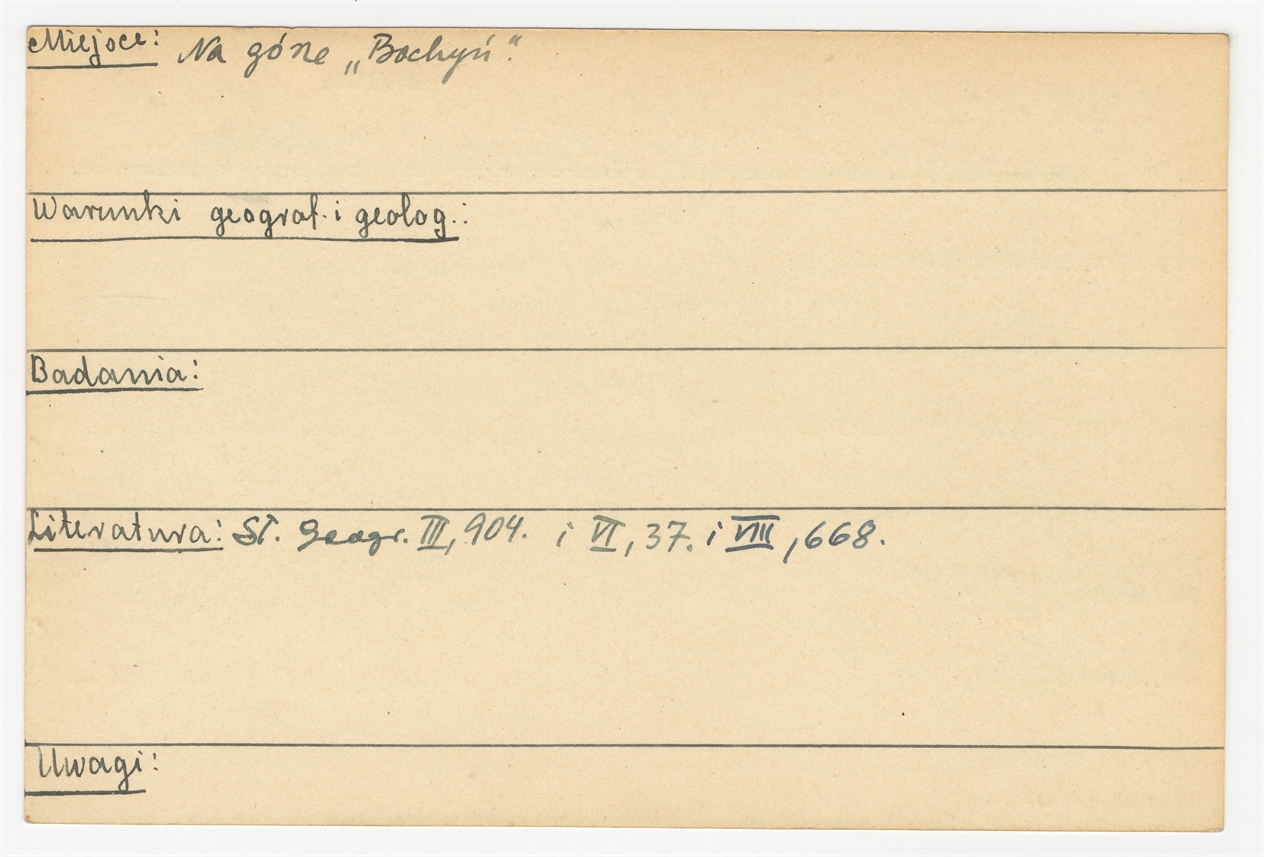 Miejsce: Na górze „Bochyń".
Warunki geograf. i geolog.:
Badania:
Literatura: Sł. Geogr. III, 904. i VI, 37. i VIII, 668.
Uwagi: